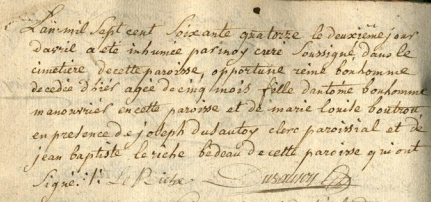 L'an mil sept cent soixante quatorze le deuxiême jour
davril a eté inhumee par moy curé soussigné, dans le
cimetiere de cette paroisse, opportune reme bonhomme
decedée d'hier agée de cinq mois fille dantoine bonhomme
manouvrier en cette paroisse et de marie louise boutrou
en presence de joseph dusautoy clerc paroissial et de
jean baptiste leriche bedeau de cette paroisse qui ont
signé. Le Riche Dusautoy